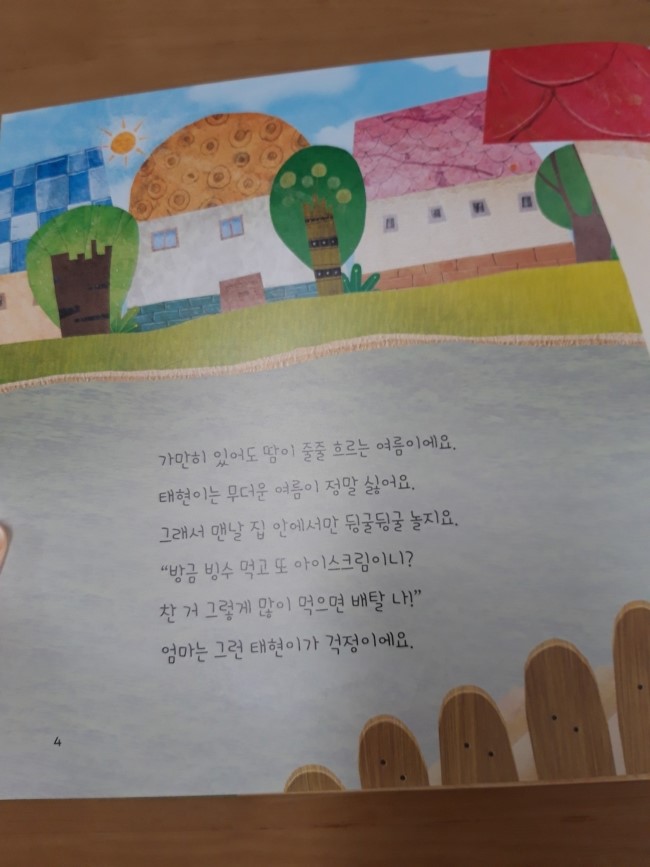 가만히 있어도 땀이 줄줄 흐르는 여름이에요.
태현이는 무더운 여름이 정말 싫어요.
그래서 맨날 집 안에서만 뒹굴뒹굴 놀지요.
“방금 빙수 먹고 또 아이스크림이니?
찬 거 그렇게 많이 먹으면 배탈 나!”
엄마는 그런 태현이가 걱정이에요.
4